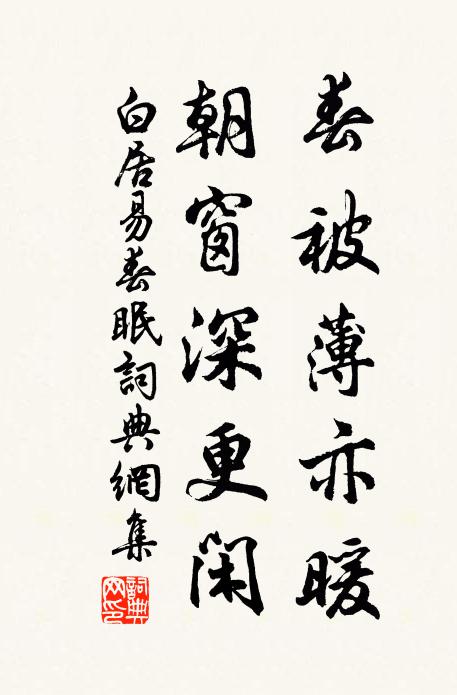 春被薄亦暖
朝窗深更閑
白居易春眠詞典網集
詞典網印